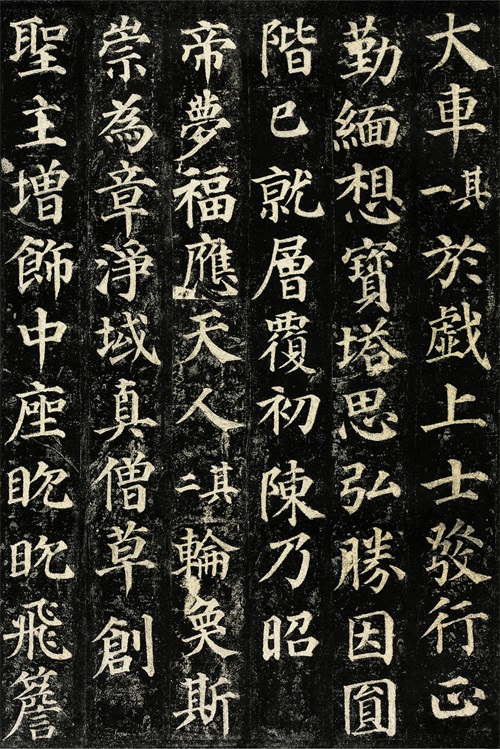 大車其一於戲上士發行正
勤緬想寶塔思弘勝因圓
階已就層覆初陳乃昭
帝夢福應天人其二輪奐斯
崇為章淨域真僧草創
聖主增飾中座眈眈飛簷